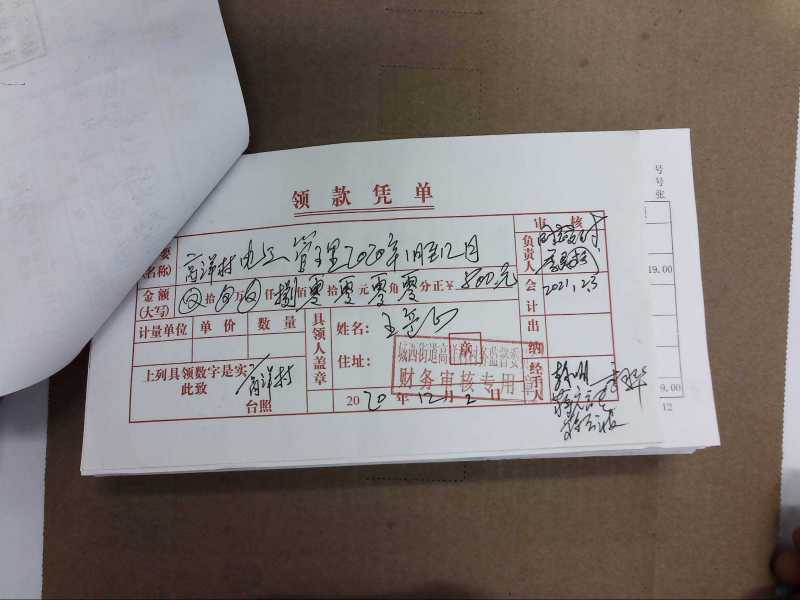 号
号
张
领款凭单
要
(名称)
高洋村电工管理2020年1月至12月
审核
负责人
同意支付
19.00
金额
(大写)
⊗拾⊗万⊗仟捌佰零拾零元零角零分正¥800元
会计
2021.2.3
计量单位 单价 数量
具领人盖章
姓名:
住址:
出纳
上列具领数字是实
此致
高洋村
台照
章
城西街道高洋村村务监督委
财务审核专用章
2020年12月2日
经手人
9.00
12